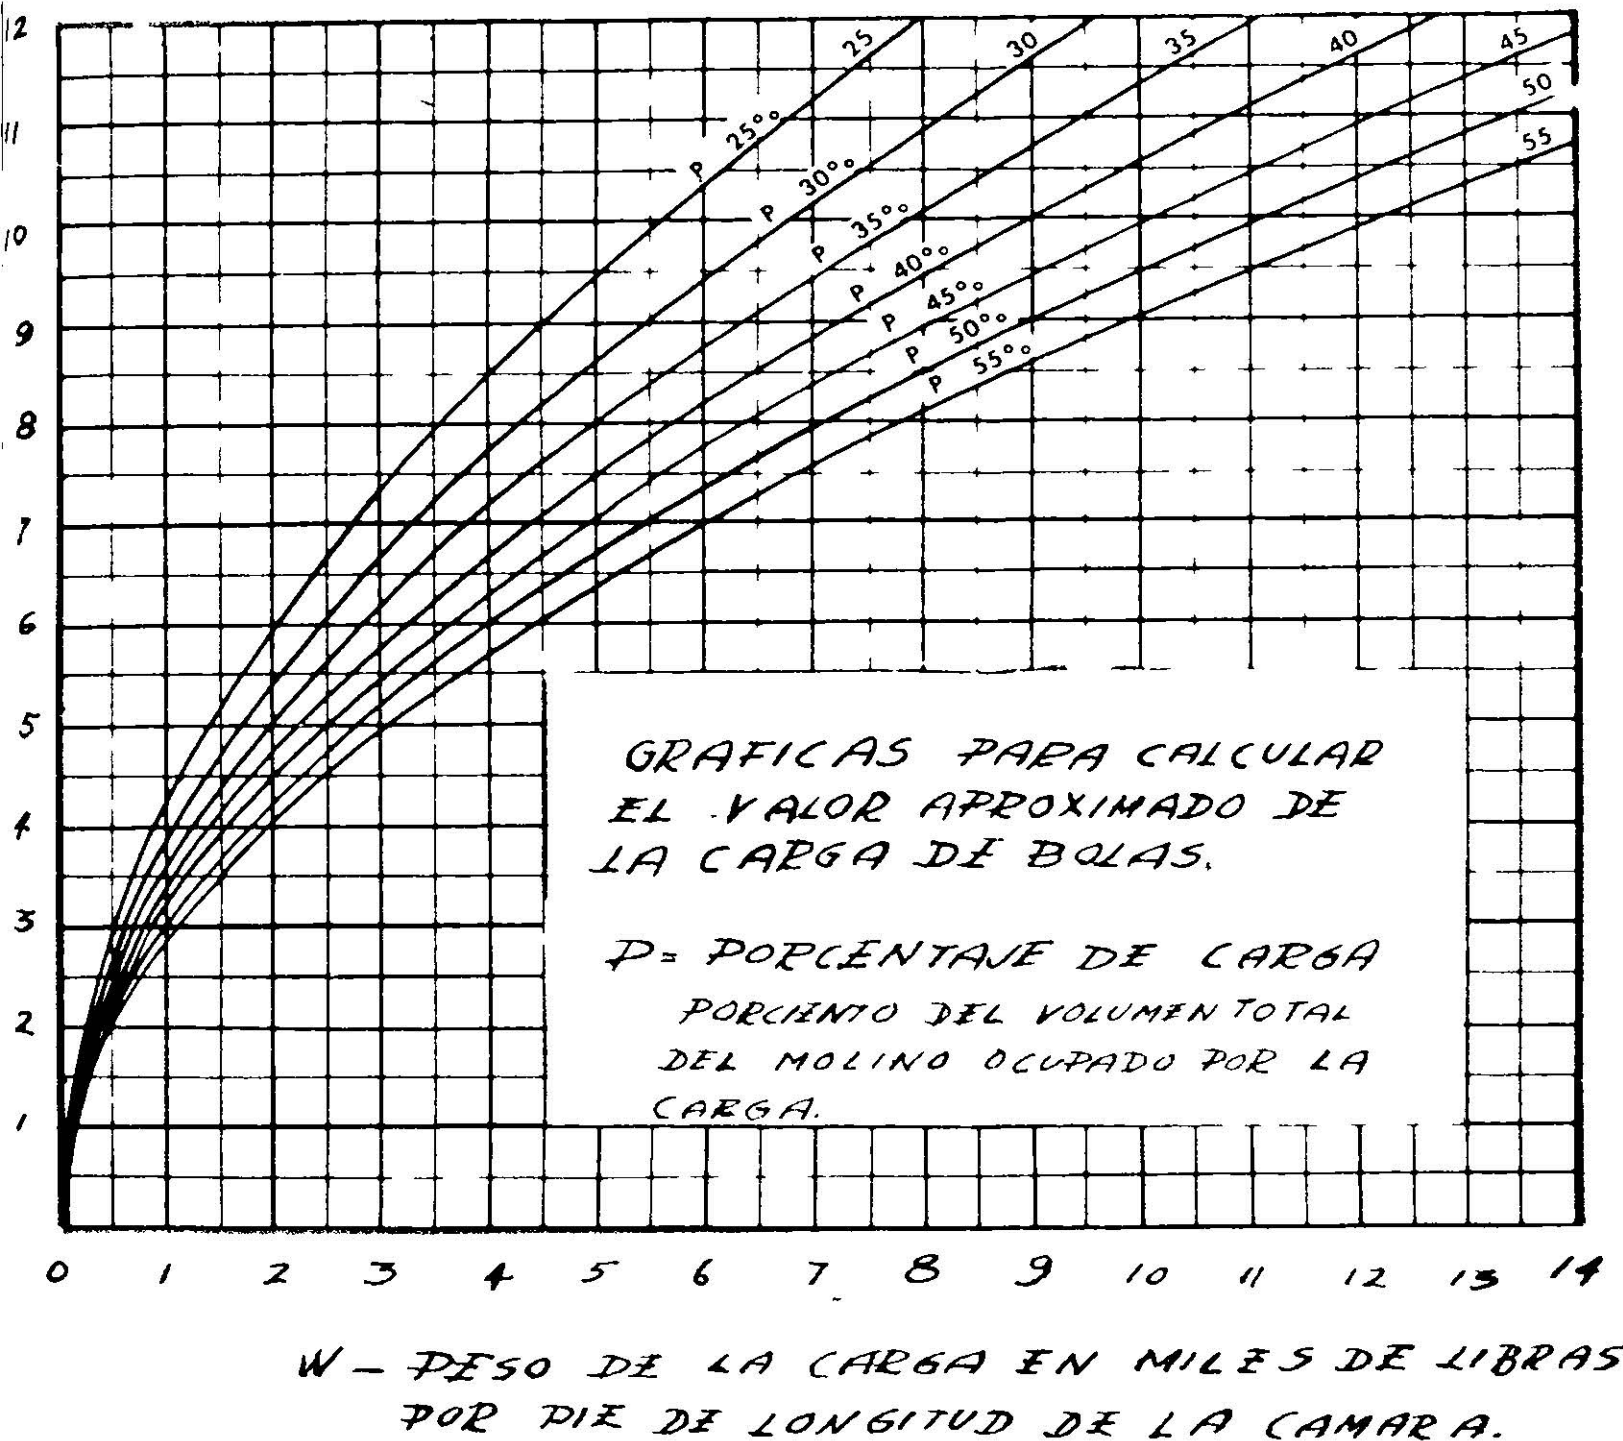 12
11
10
9
8
7
6
5
4
3
2
1
25
30
35
40
45
50
55
P 25%
P 30%
P 35%
P 40%
P 45%
P 50%
P 55%
GRAFICAS PARA CALCULAR
EL VALOR APROXIMADO DE
LA CARGA DE BOLAS.
P= PORCENTAJE DE CARGA
PORCIENTO DEL VOLUMEN TOTAL
DEL MOLINO OCUPADO POR LA
CARGA.
0 1 2 3 4 5 6 7 8 9 10 11 12 13 14
W - PESO DE LA CARGA EN MILES DE LIBRAS
POR PIE DE LONGITUD DE LA CAMARA.